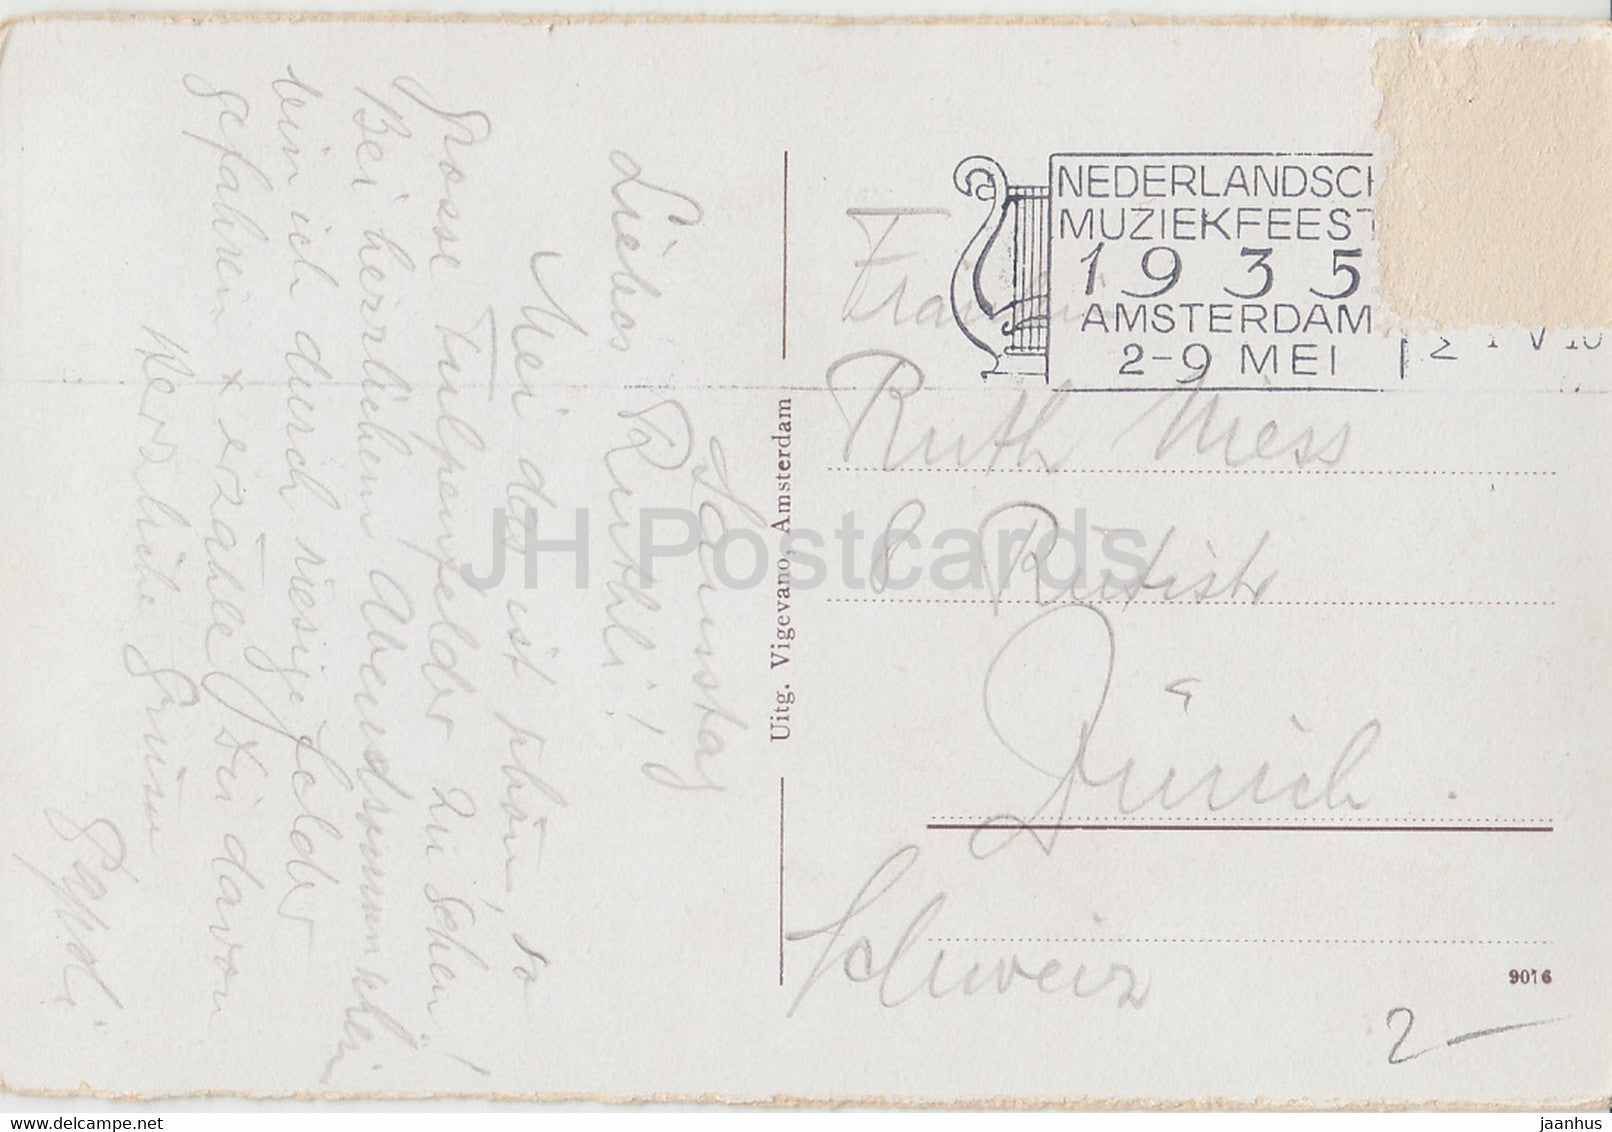 Samstag
Liebes Ruthli!
Mei das ist schön, so
grosse Tulpenfelder zu sehen!
Bei herrlichem Abendsonnenschein
bin ich durch riesige Felder
gefahren + erzähle Dir davon
Herzliche Grüsse
Uitg. Vigevano, Amsterdam
NEDERLANDSCH
MUZIEKFEEST
1935
AMSTERDAM
2-9 MEI
Ruth Mess
8 Rütistr
Zürich.
Schweiz
9016
2 —
JH Postcards
www.delcampe.net
jaanhus